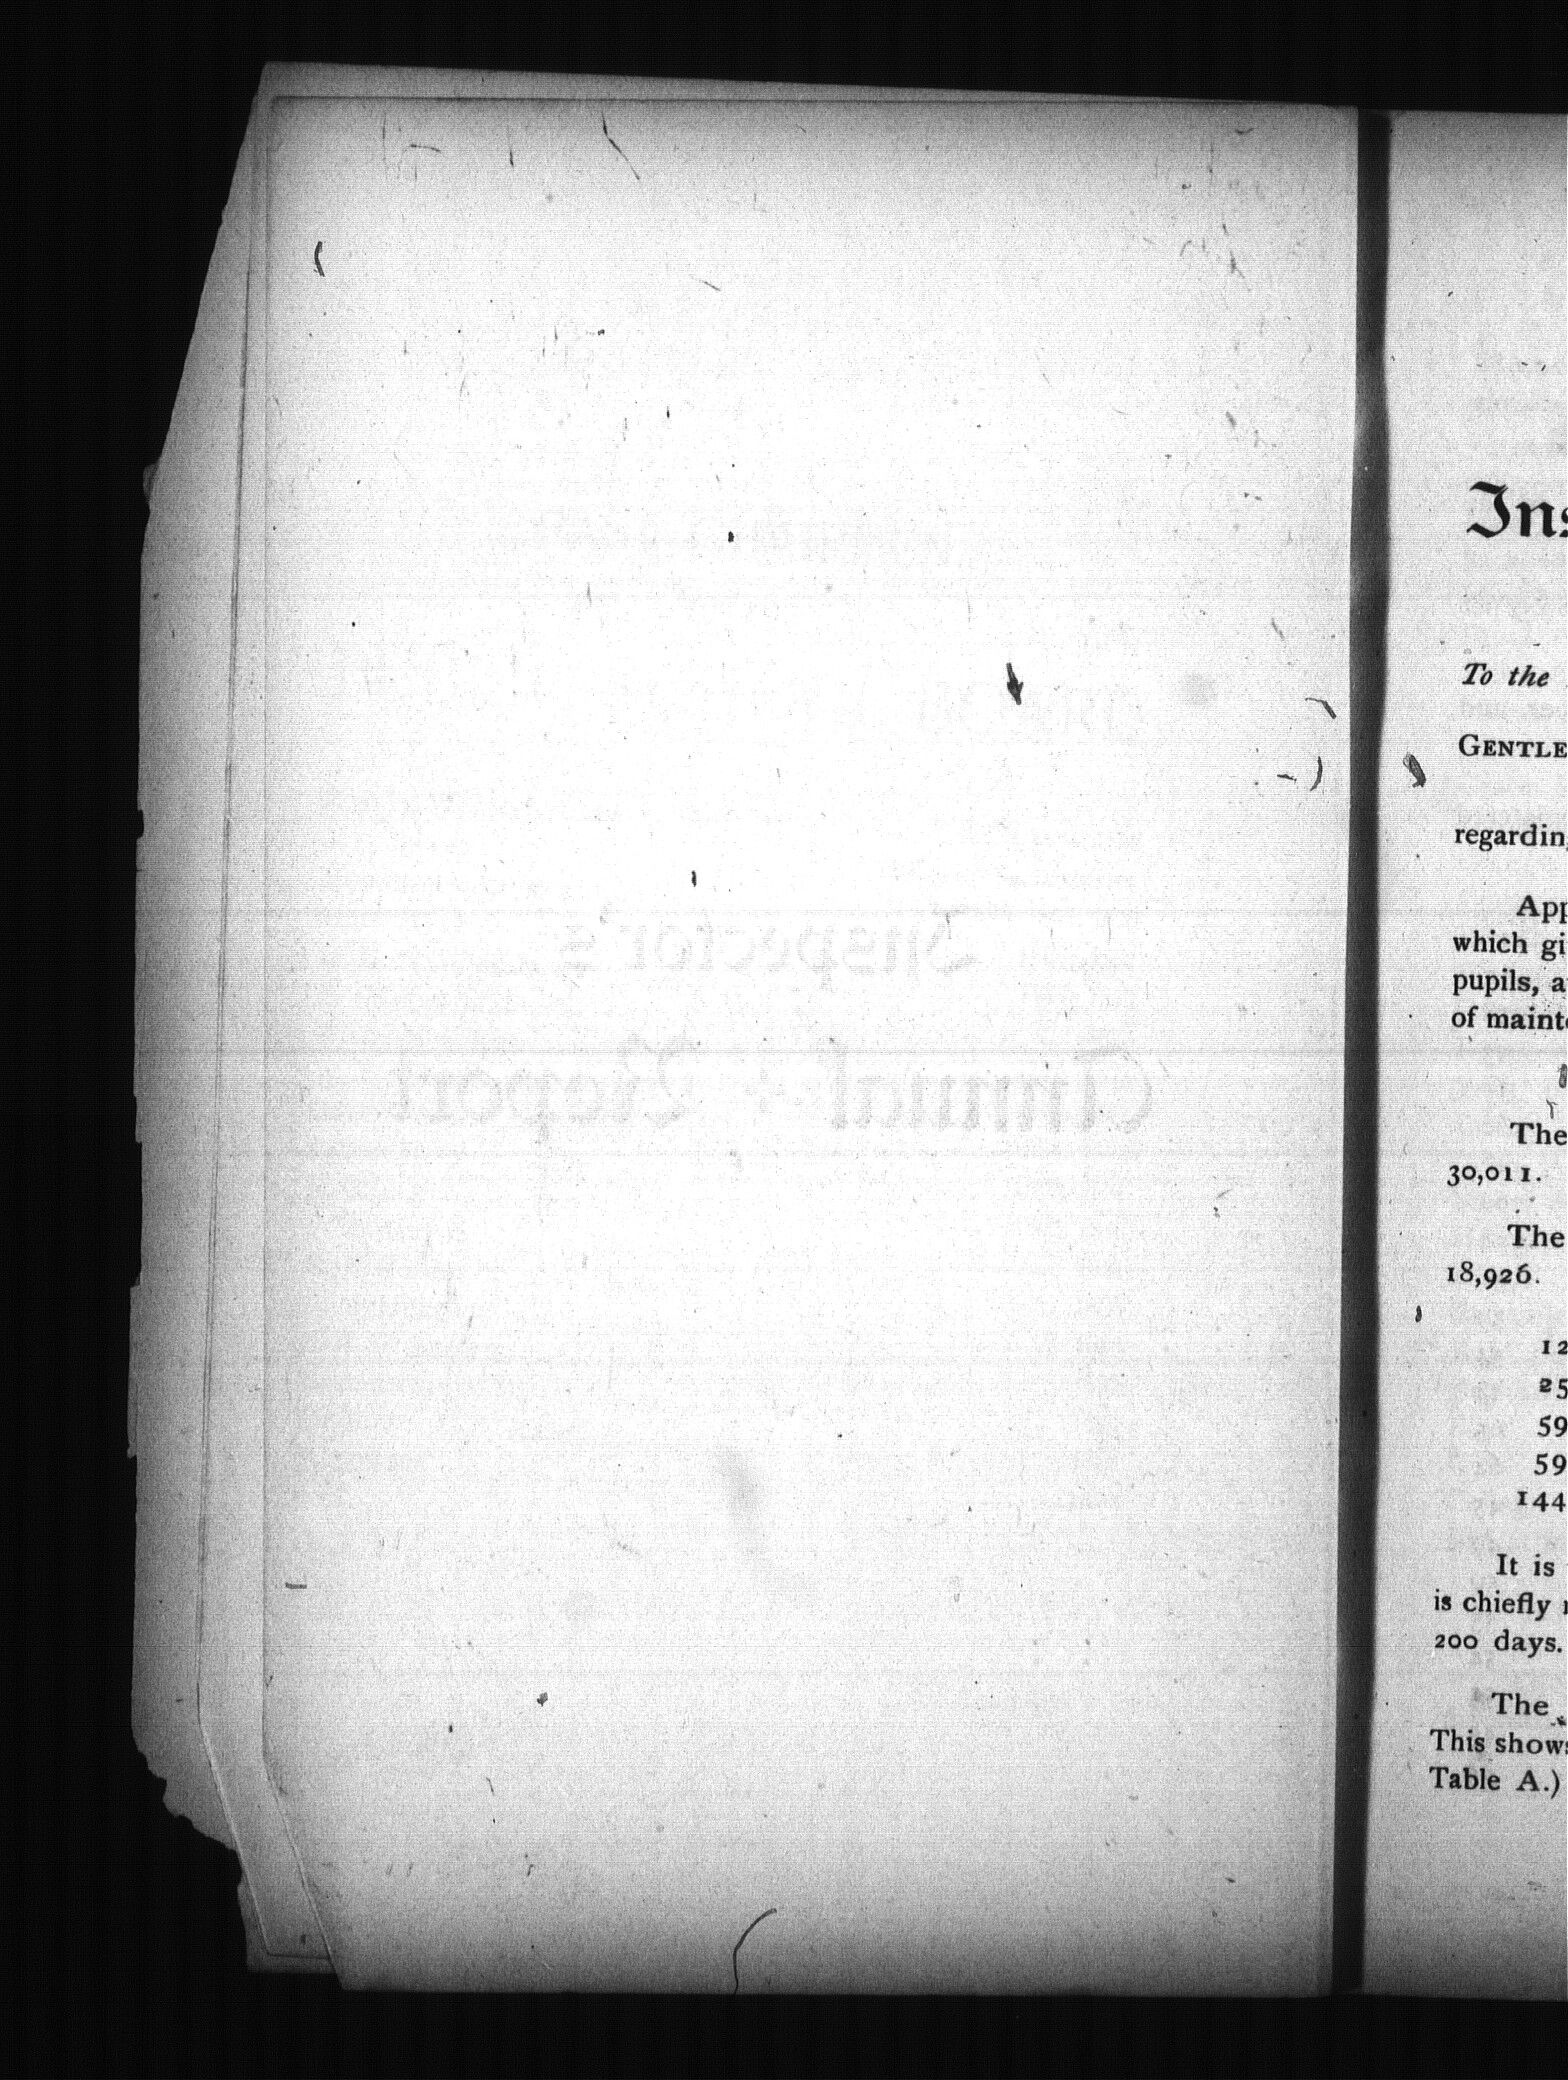 Inspector's
Annual Report
Ins
To the
GENTLE
regardin
App
which gi
pupils, a
of mainte
The
30,011.
The
18,926.
12
25
59
59
144
It is
is chiefly
200 days.
The
This shows
Table A.)